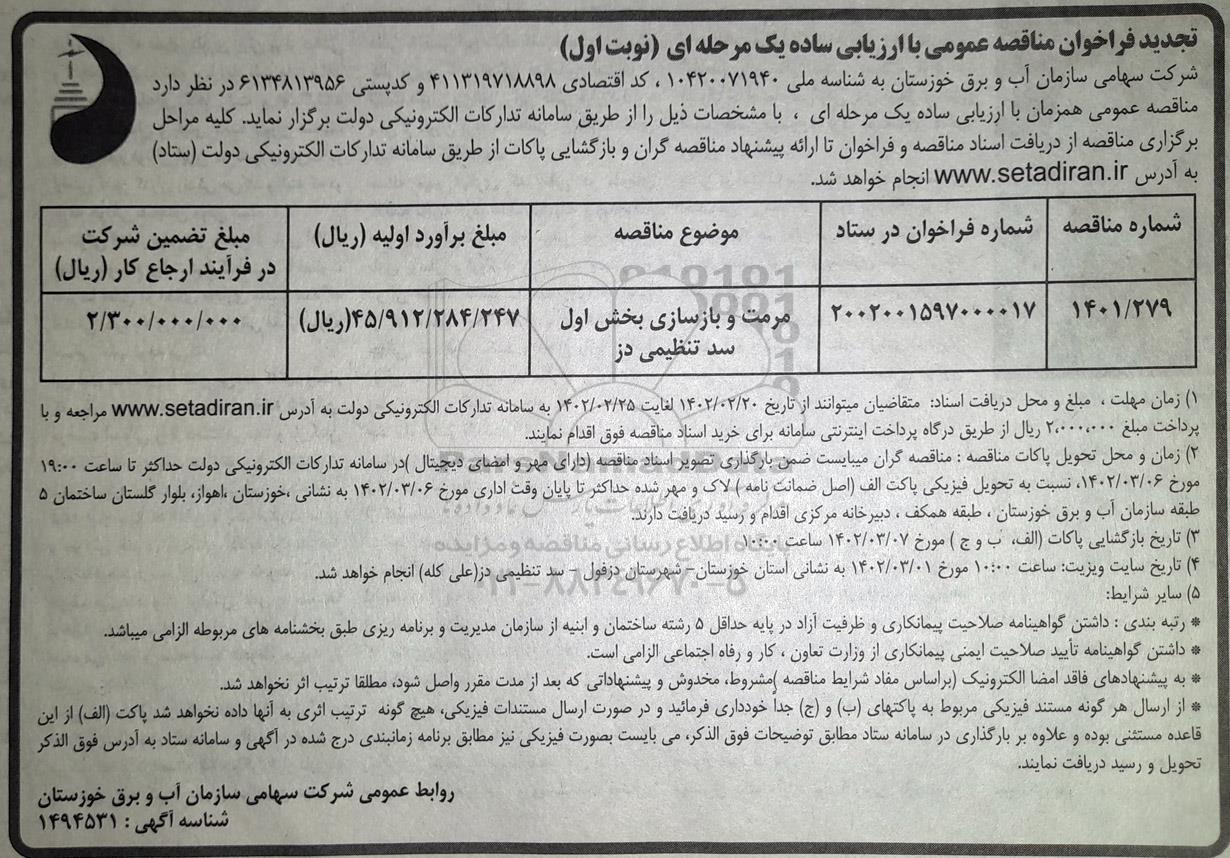 تجدید فراخوان مناقصه عمومی با ارزیابی ساده یک مرحله ای (نوبت اول)
شرکت سهامی سازمان آب و برق خوزستان به شناسه ملی ۱۰۴۲۰۰۷۱۹۴۰ ، کد اقتصادی ۴۱۱۳۱۹۷۱۸۸۹۸ و کدپستی ۶۱۳۴۸۱۳۹۵۶ در نظر دارد
مناقصه عمومی همزمان با ارزیابی ساده یک مرحله ای ، با مشخصات ذیل را از طریق سامانه تدارکات الکترونیکی دولت برگزار نماید. کلیه مراحل
برگزاری مناقصه از دریافت اسناد مناقصه و فراخوان تا ارائه پیشنهاد مناقصه گران و بازگشایی پاکات از طریق سامانه تدارکات الکترونیکی دولت (ستاد)
به آدرس www.setadiran.ir انجام خواهد شد.
شماره مناقصه
شماره فراخوان در ستاد
موضوع مناقصه
مبلغ برآورد اولیه (ریال)
مبلغ تضمین شرکت
در فرآیند ارجاع کار (ریال)
۱۴۰۱/۲۷۹
۲۰۰۲۰۰۱۵۹۷۰۰۰۰۱۷
مرمت و بازسازی بخش اول
سد تنظیمی دز
۴۵/۹۱۲/۲۸۴/۲۴۷(ریال)
۲/۳۰۰/۰۰۰/۰۰۰
۱) زمان مهلت ، مبلغ و محل دریافت اسناد: متقاضیان میتوانند از تاریخ ۱۴۰۲/۰۲/۲۰ لغایت ۱۴۰۲/۰۲/۲۵ به سامانه تدارکات الکترونیکی دولت به آدرس www.setadiran.ir مراجعه و با
پرداخت مبلغ ۲،۰۰۰،۰۰۰ ریال از طریق درگاه پرداخت اینترنتی سامانه برای خرید اسناد مناقصه فوق اقدام نمایند.
۲) زمان و محل تحویل پاکات مناقصه : مناقصه گران میبایست ضمن بارگذاری تصویر اسناد مناقصه (دارای مهر و امضای دیجیتال )در سامانه تدارکات الکترونیکی دولت حداکثر تا ساعت ۱۹:۰۰
مورخ ۱۴۰۲/۰۳/۰۶، نسبت به تحویل فیزیکی پاکت الف (اصل ضمانت نامه ) لاک و مهر شده حداکثر تا پایان وقت اداری مورخ ۱۴۰۲/۰۳/۰۶ به نشانی ،خوزستان ،اهواز، بلوار گلستان ساختمان ۵
طبقه سازمان آب و برق خوزستان ، طبقه همکف ، دبیرخانه مرکزی اقدام و رسید دریافت دارند.
۳) تاریخ بازگشایی پاکات (الف، ب و ج ) مورخ ۱۴۰۲/۰۳/۰۷ ساعت ۱۰:۰۰
۴) تاریخ سایت ویزیت: ساعت ۱۰:۰۰ مورخ ۱۴۰۲/۰۳/۰۱ به نشانی استان خوزستان- شهرستان دزفول - سد تنظیمی دز(علی کله) انجام خواهد شد.
۵) سایر شرایط:
* رتبه بندی : داشتن گواهینامه صلاحیت پیمانکاری و ظرفیت آزاد در پایه حداقل ۵ رشته ساختمان و ابنیه از سازمان مدیریت و برنامه ریزی طبق بخشنامه های مربوطه الزامی میباشد.
* داشتن گواهینامه تأیید صلاحیت ایمنی پیمانکاری از وزارت تعاون ، کار و رفاه اجتماعی الزامی است.
* به پیشنهادهای فاقد امضا الکترونیک (براساس مفاد شرایط مناقصه )مشروط، مخدوش و پیشنهاداتی که بعد از مدت مقرر واصل شود، مطلقا ترتیب اثر نخواهد شد.
* از ارسال هر گونه مستند فیزیکی مربوط به پاکتهای (ب) و (ج) جدا خودداری فرمائید و در صورت ارسال مستندات فیزیکی، هیچ گونه ترتیب اثری به آنها داده نخواهد شد پاکت (الف) از این
قاعده مستثنی بوده و علاوه بر بارگذاری در سامانه ستاد مطابق توضیحات فوق الذکر، می بایست بصورت فیزیکی نیز مطابق برنامه زمانبندی درج شده در آگهی و سامانه ستاد به آدرس فوق الذکر
تحویل و رسید دریافت نمایند.
روابط عمومی شرکت سهامی سازمان آب و برق خوزستان
شناسه آگهی : ۱۴۹۴۵۳۱
پایگاه اطلاع رسانی مناقصه و مزایده
۰۲۱-۸۸۳۴۹۶۷۰-۵